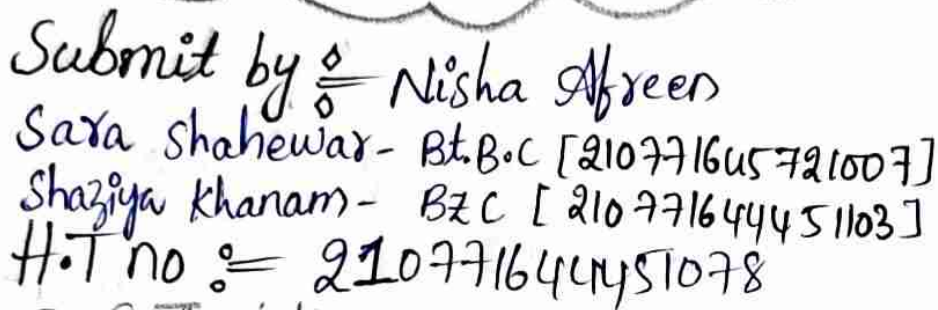 Submit by :- Nisha Afreen
Sara Shahewar - Bt.B.C [210771645721007]
Shaziya Khanam - BZC [210771644451103]
H.T no := 210771644451078